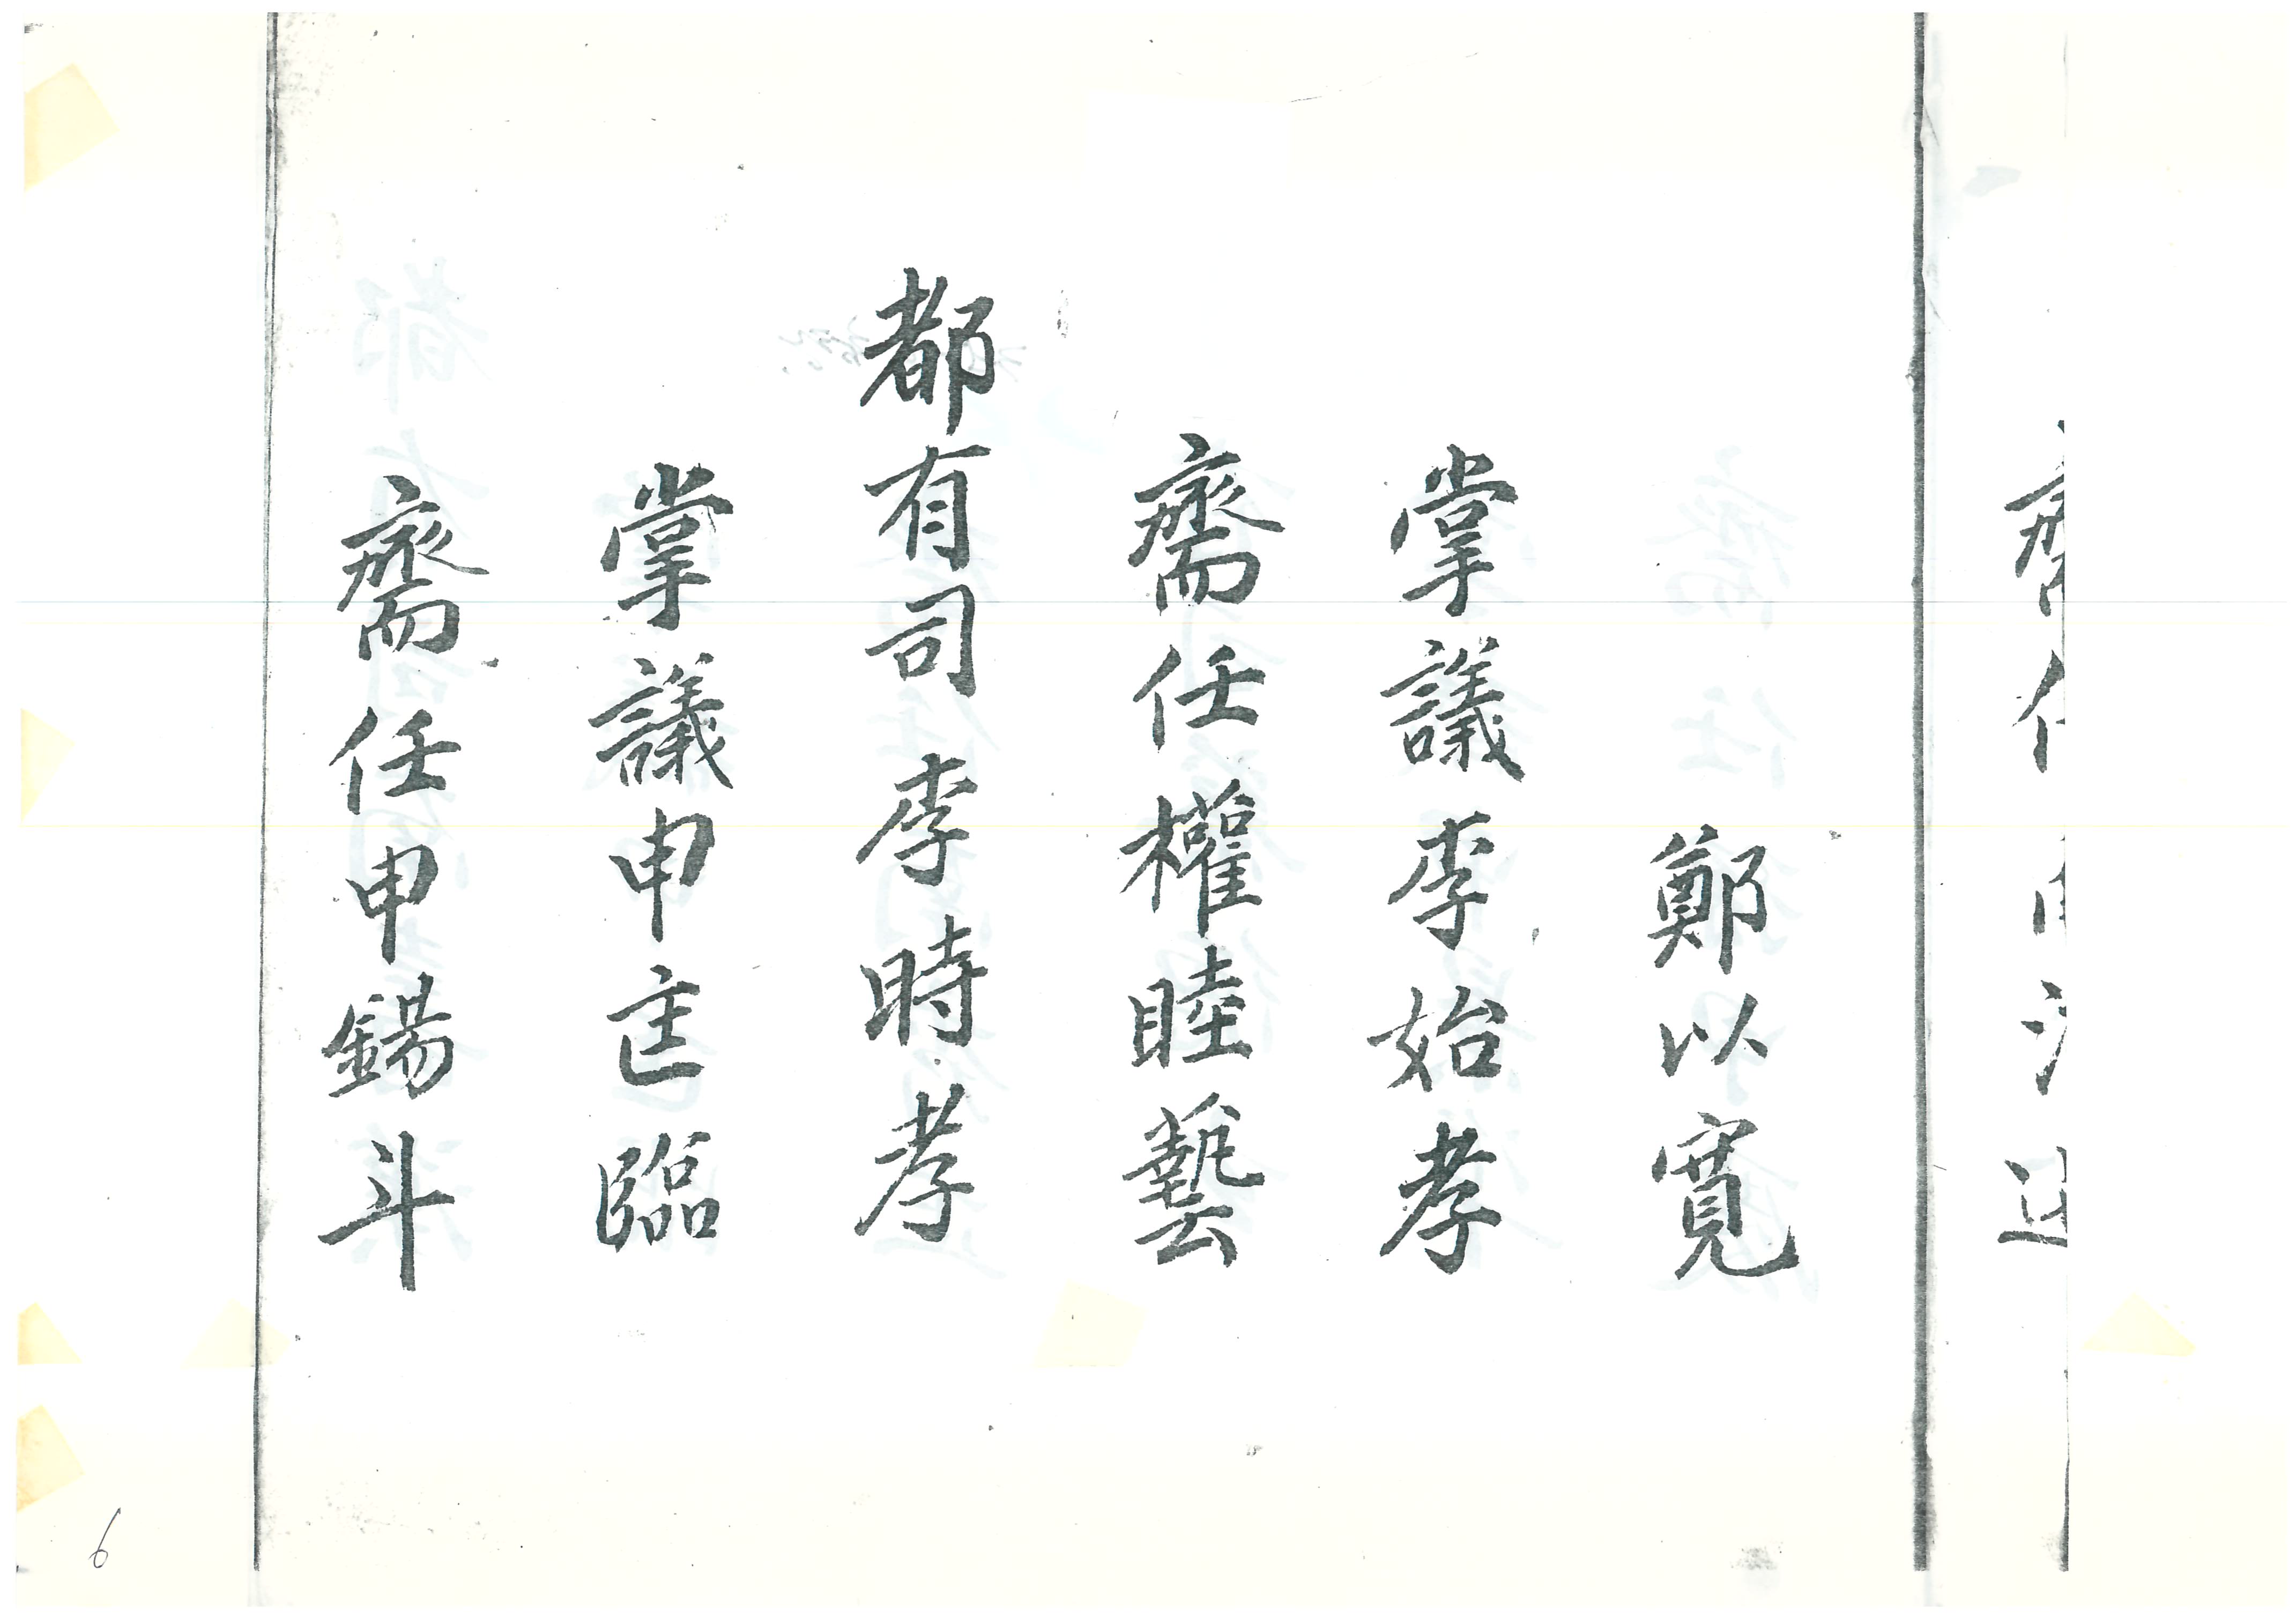 鄭以寬
掌議李始孝
齋任權睦藝
都有司李時孝
掌議申匡臨
齋任申錫斗
6